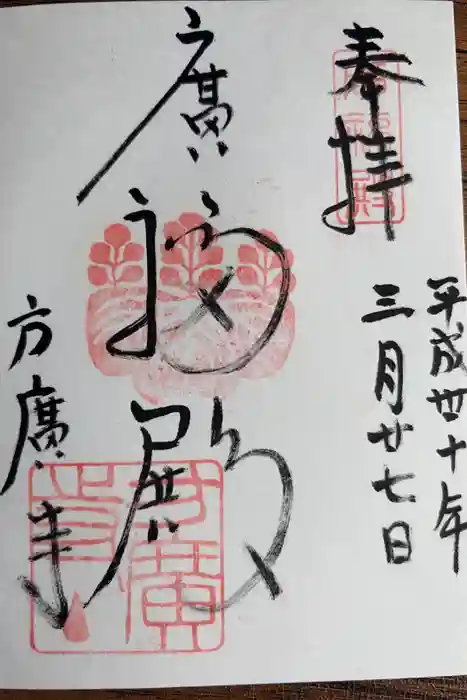 奉拝
平成丗十年
三月廿七日
廣福殿
方廣寺